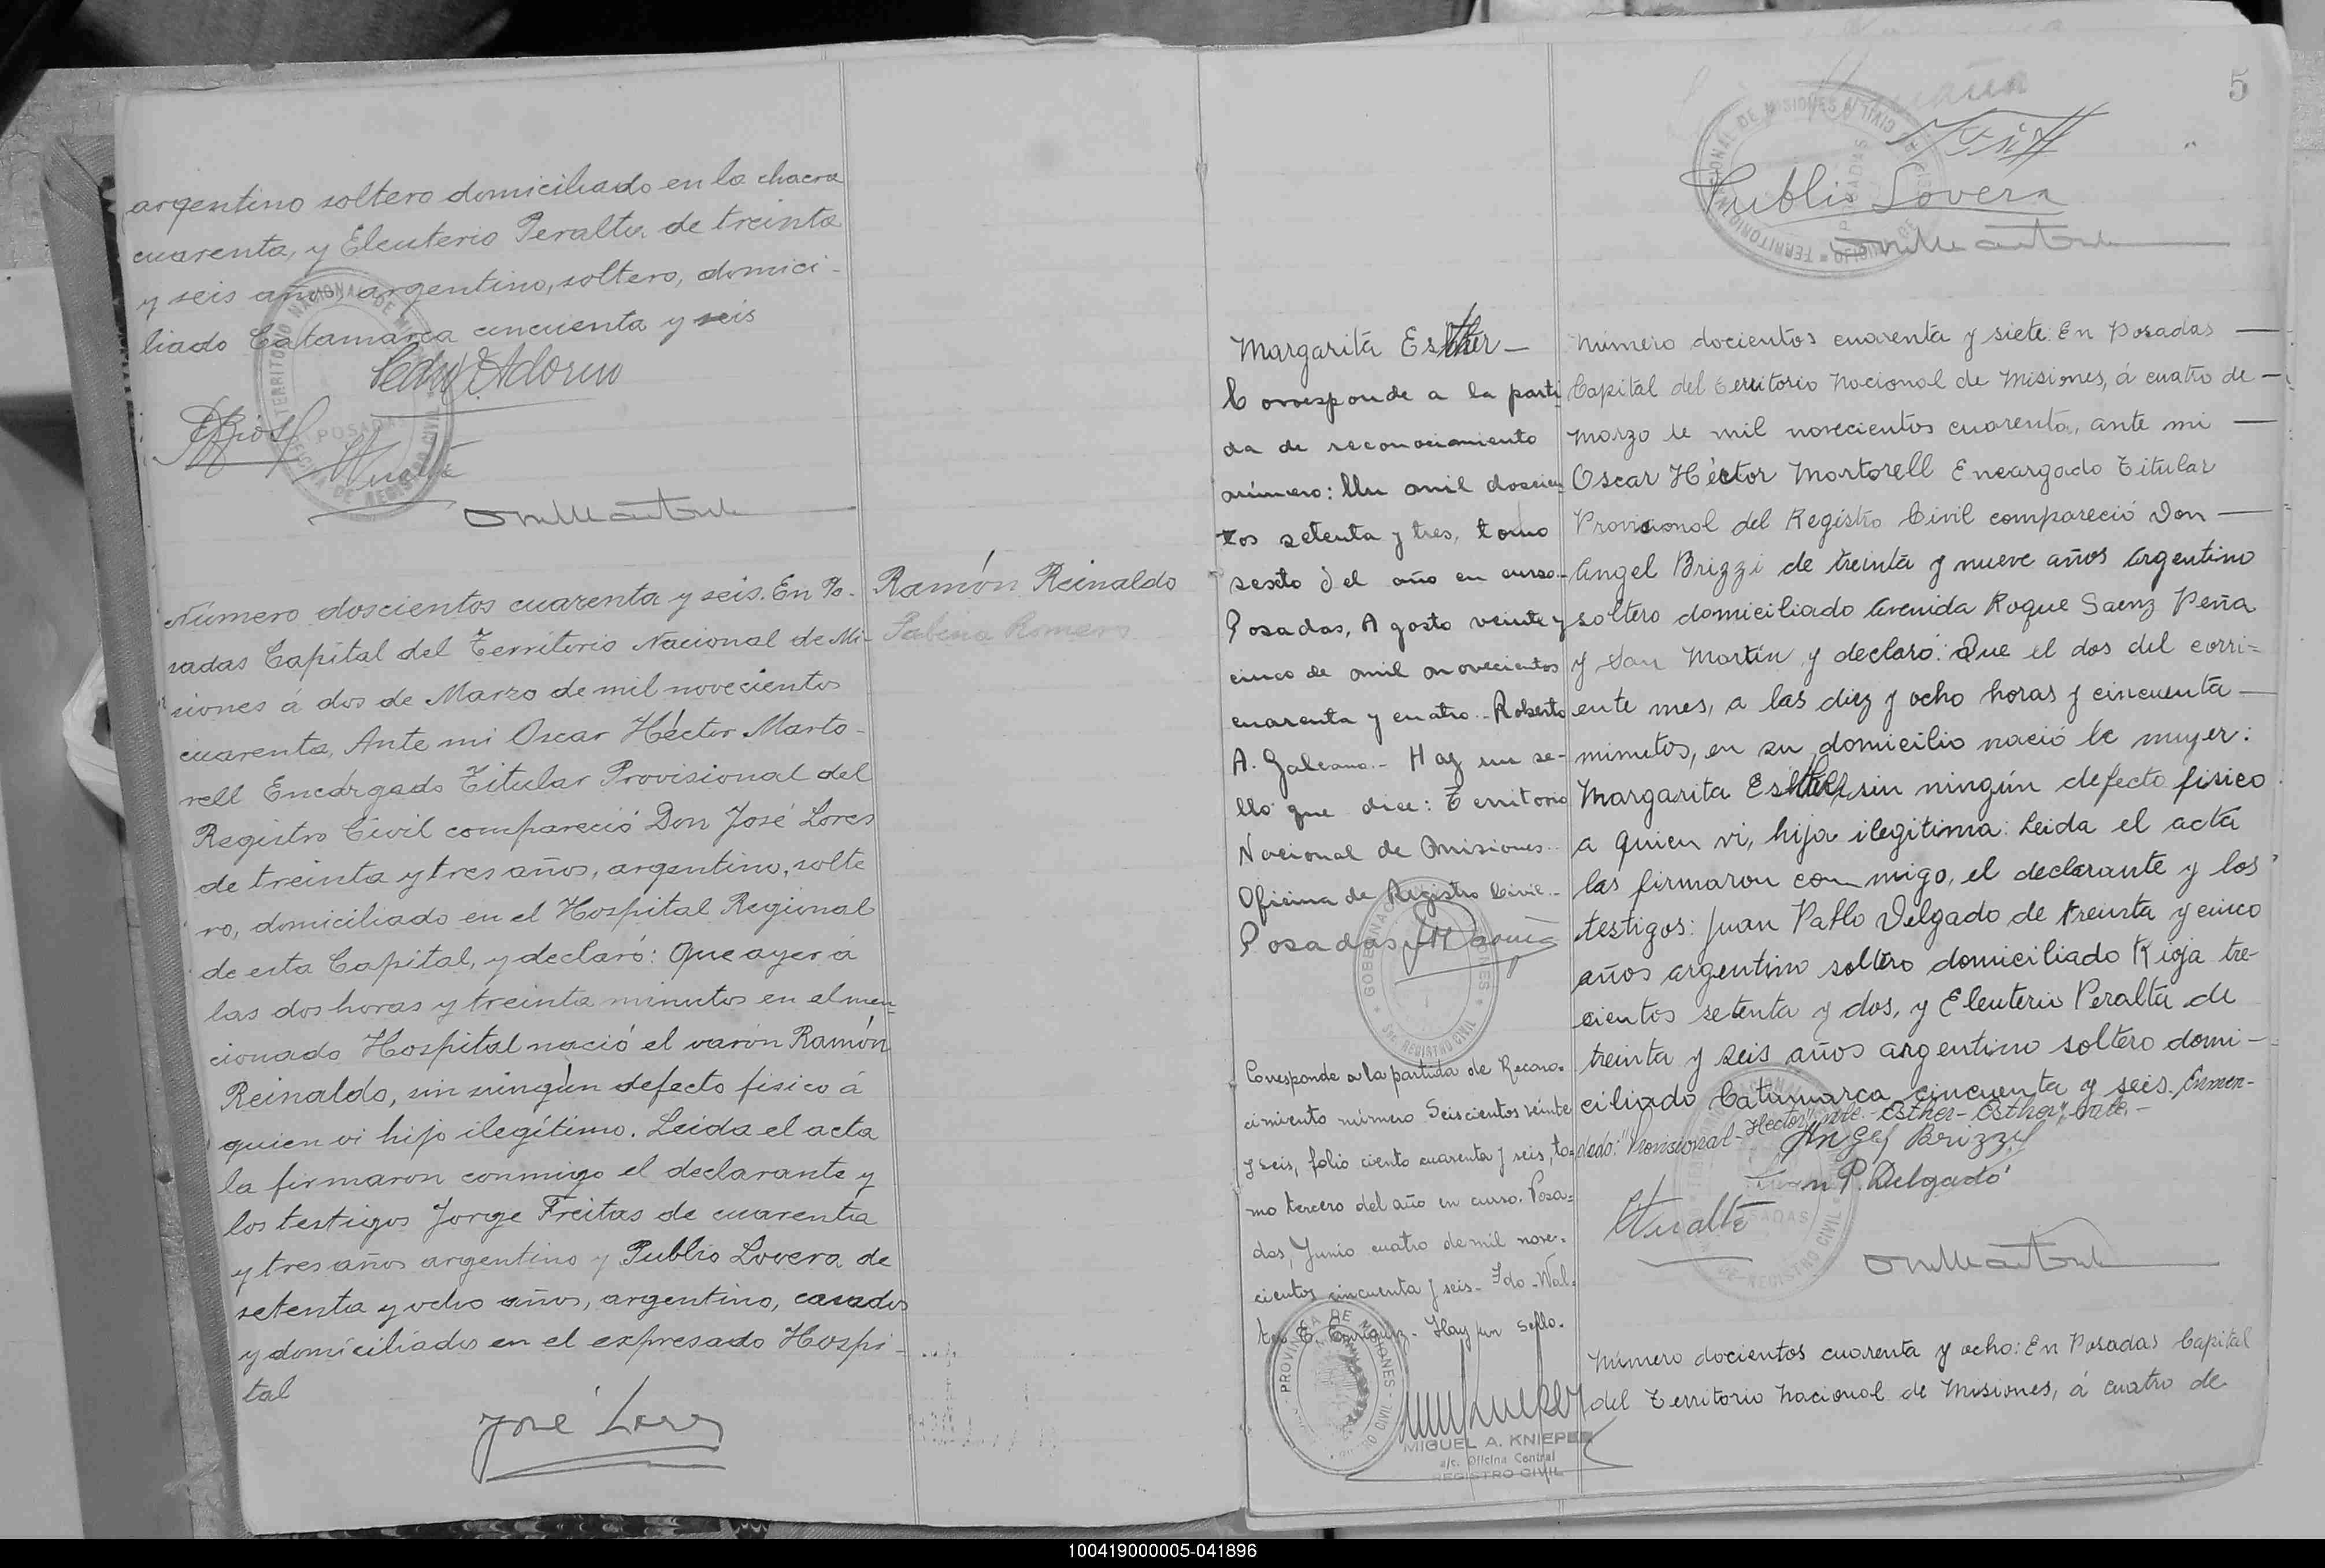 argentino soltero domiciliado en la chacra
cuarenta, y Eleuterio Peralta de treinta
y seis años, argentino, soltero, domici-
liado Catamarca cincuenta y seis
TERRITORIO NACIONAL DE MISIONES
OFICINA DE REGISTRO CIVIL
POSADAS
Número doscientos cuarenta y seis. En Po-
sadas Capital del Territorio Nacional de Mi-
siones á dos de Marzo de mil novecientos
cuarenta, Ante mi Oscar Héctor Marto-
rell Encargado Titular Provisional del
Registro Civil compareció Don José Lores
de treinta y tres años, argentino, solte
ro, domiciliado en el Hospital Regional
de esta Capital, y declaró: Que ayer á
las dos horas y treinta minutos en el men-
cionado Hospital nació el varón Ramón
Reinaldo, sin ningún defecto físico á
quien vi hijo ilegítimo. Leida el acta
la firmaron conmigo el declarante y
los testigos Jorge Freitas de cuarenta
y tres años argentino y Publio Lovera de
setenta y ocho años, argentino, casados
y domiciliados en el expresado Hospi-
tal
José Lores
Ramón Reinaldo
Sabina Romero
5
TERRITORIO NACIONAL DE MISIONES
OFICINA DE REGISTRO CIVIL
POSADAS
Publio Lovera
Margarita Esther -
Corresponde a la parti
da de reconocimiento
número: Un mil doscien
tos setenta y tres, tomo
sexto del año en curso.-
Posadas, Agosto veinte y
cinco de mil novecientos
cuarenta y cuatro.- Roberto
A. Galeano.- Hay un se-
llo que dice: Territorio
Nacional de Misiones.-
Oficina de Registro Civil.-
Posadas
Corresponde a la partida de Recono-
cimiento número Seiscientos veinte
y seis, folio ciento cuarenta y seis, to-
mo tercero del año en curso. Posa-
das, Junio cuatro de mil nove-
cientos cincuenta y seis - Fdo - Wal-
ter E. - Hay un sello.
PROVINCIA DE MISIONES
REGISTRO CIVIL
MIGUEL A. KNIEPER
a/c. Oficina Central
REGISTRO CIVIL
Número docientos cuarenta y siete: En Posadas
Capital del Territorio Nacional de Misiones, á cuatro de
marzo de mil novecientos cuarenta, ante mi
Oscar Héctor Martorell Encargado Titular
Provicional del Registro Civil compareció Don
Angel Brizzi de treinta y nueve años argentino
soltero domiciliado Avenida Roque Saenz Peña
y San Martín y declaró: Que el dos del corri=
ente mes, a las diez y ocho horas y cincuenta
minutos, en su domicilio nació la mujer:
Margarita Esther, sin ningún defecto físico
a quien vi, hija ilegitima: Leida el acta
las firmaron con migo, el declarante y los
testigos: Juan Pablo Delgado de treinta y cinco
años argentino soltero domiciliado Rioja tre-
cientos setenta y dos, y Eleuterio Peralta de
treinta y seis años argentino soltero domi-
ciliado Catamarca cincuenta y seis. Enmen-
dado: "Provisional - Hector" vale.- Esther - Esther, vale.-
Angel Brizzi
Juan P. Delgado
Número docientos cuarenta y ocho: En Posadas Capital
del Territorio Nacional de Misiones, á cuatro de
100419000005-041896